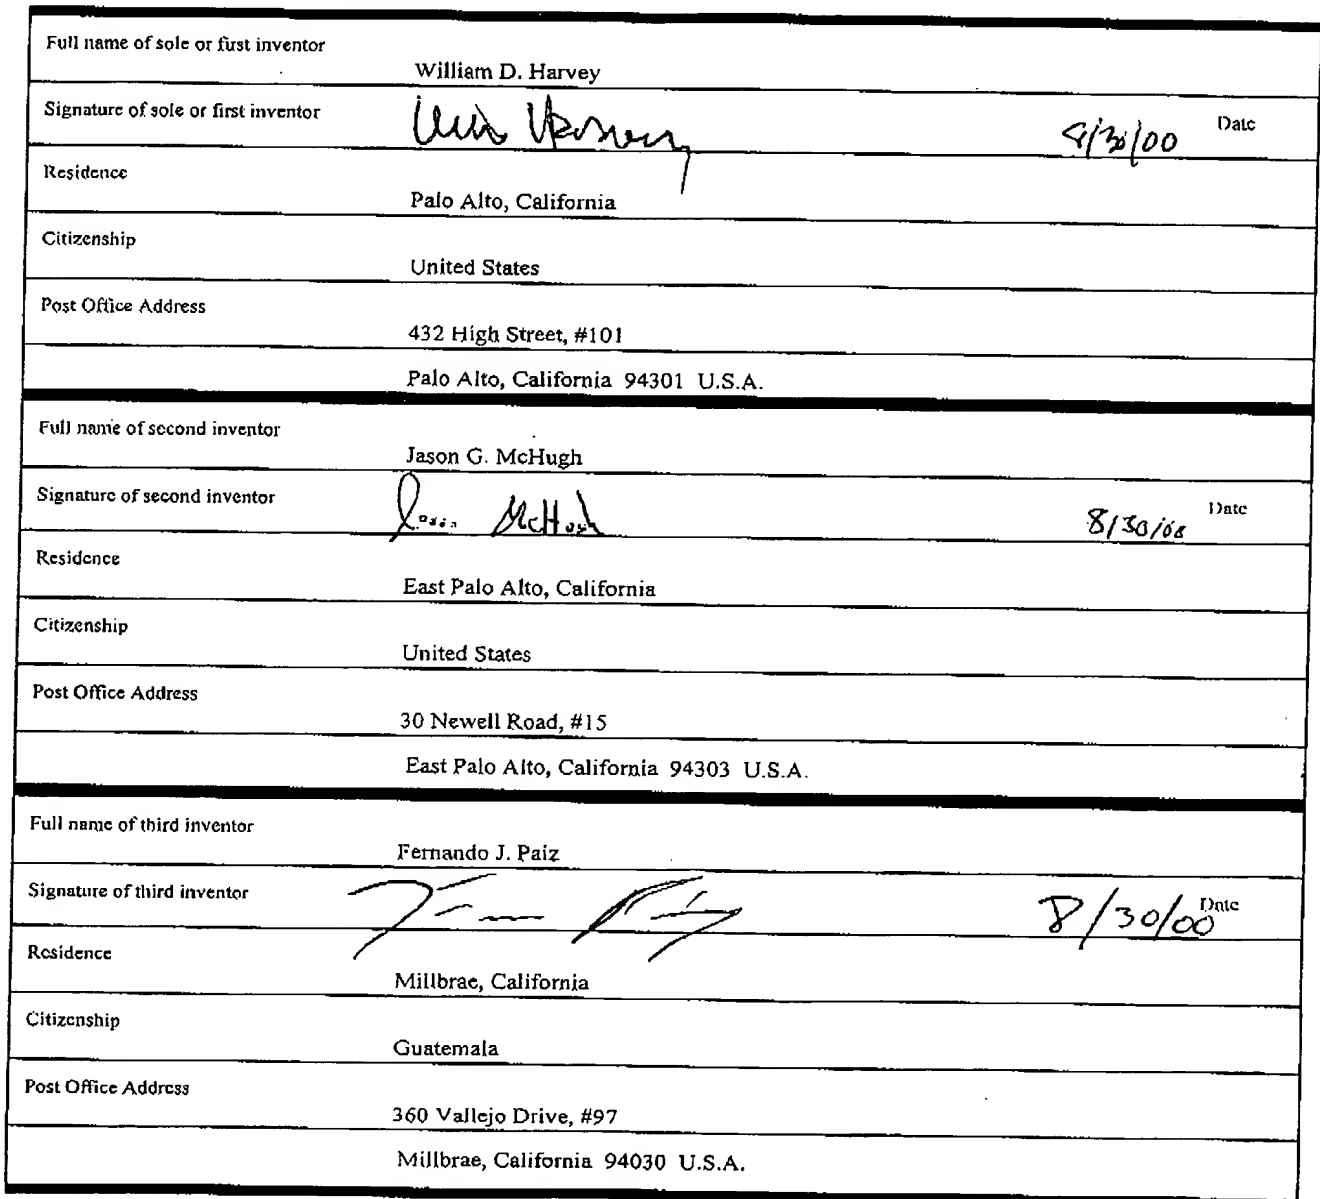 Full name of sole or first inventor
William D. Harvey
Signature of sole or first inventor
8/30/00 Date
Residence
Palo Alto, California
Citizenship
United States
Post Office Address
432 High Street, #101
Palo Alto, California 94301 U.S.A.
Full name of second inventor
Jason G. McHugh
Signature of second inventor
Jason McHugh 8/30/00 Date
Residence
East Palo Alto, California
Citizenship
United States
Post Office Address
30 Newell Road, #15
East Palo Alto, California 94303 U.S.A.
Full name of third inventor
Fernando J. Paiz
Signature of third inventor
8/30/00 Date
Residence
Millbrae, California
Citizenship
Guatemala
Post Office Address
360 Vallejo Drive, #97
Millbrae, California 94030 U.S.A.